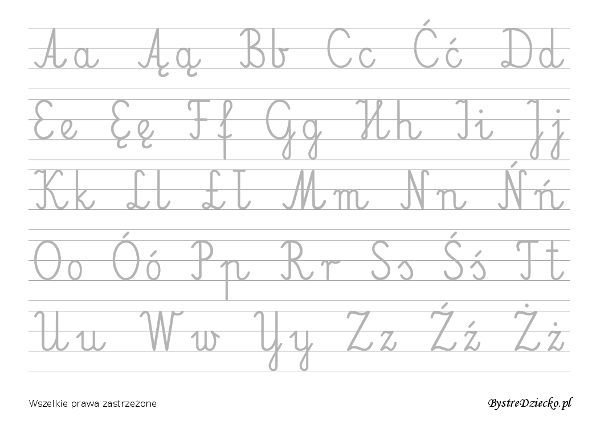 Aa Ąą Bb Cc Ćć Dd
Ee Ęę Ff Gg Hh Ii Jj
Kk Ll Łł Mm Nn Ńń
Oo Óó Pp Rr Ss Śś Tt
Uu Ww Yy Zz Źź Żż
Wszelkie prawa zastrzeżone BystreDziecko.pl